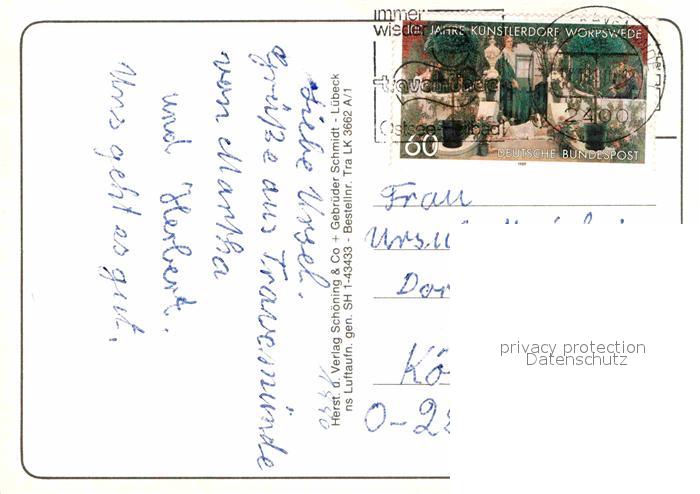 immer
wieder
JAHRE KÜNSTLERDORF WORPSWEDE
travemünde
Ostsee-Heilbad
2400
60
DEUTSCHE BUNDESPOST
1989
Liebe Ursel.
Grüße aus Travemünde
von Martha
und Herbert.
Uns geht es gut.
Herst. d. Verlag Schöning & Co + Gebrüder Schmidt - Lübeck
ns Luftaufn. gen. SH 1-43433 - Bestellnr. Tra LK 3662 A/1
Frau
Ursu
Dor
Kö
privacy protection
Datenschutz